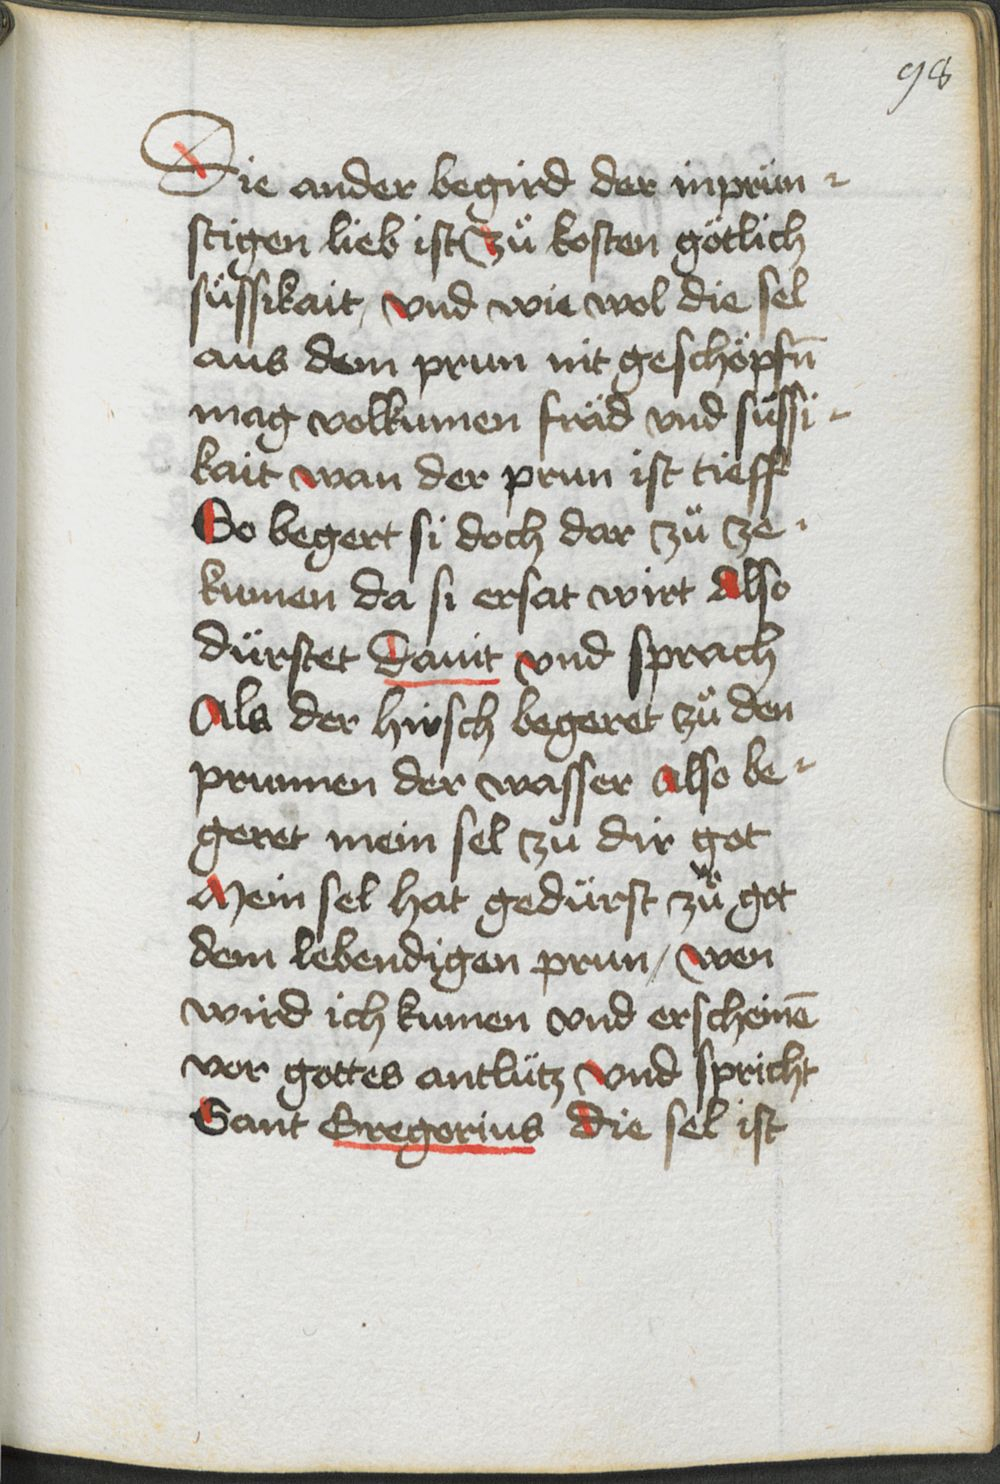 98
Die ander begird der inprün-
stigen lieb ist zů kosten götlich
süssikait / vnd wie wol die sel
aus dem prun nit geschöpfn̄
mag volkumen fräd vnd süssi-
kait wan der prun ist tieff
So begert si doch dar zů ze-
kumen da si ersat wirt Also
dürstet Dauit vnd sprach
Als der hirsch begeret zů den
prunnen der wasser Also be-
geret mein sel zů dir got
Mein sel hat gedürst zů got
dem lebendigen prun / wen
wird ich kumen vnd erscheinē
vor gottes antlütz vnd spricht
Sant Gregorius Die sel ist